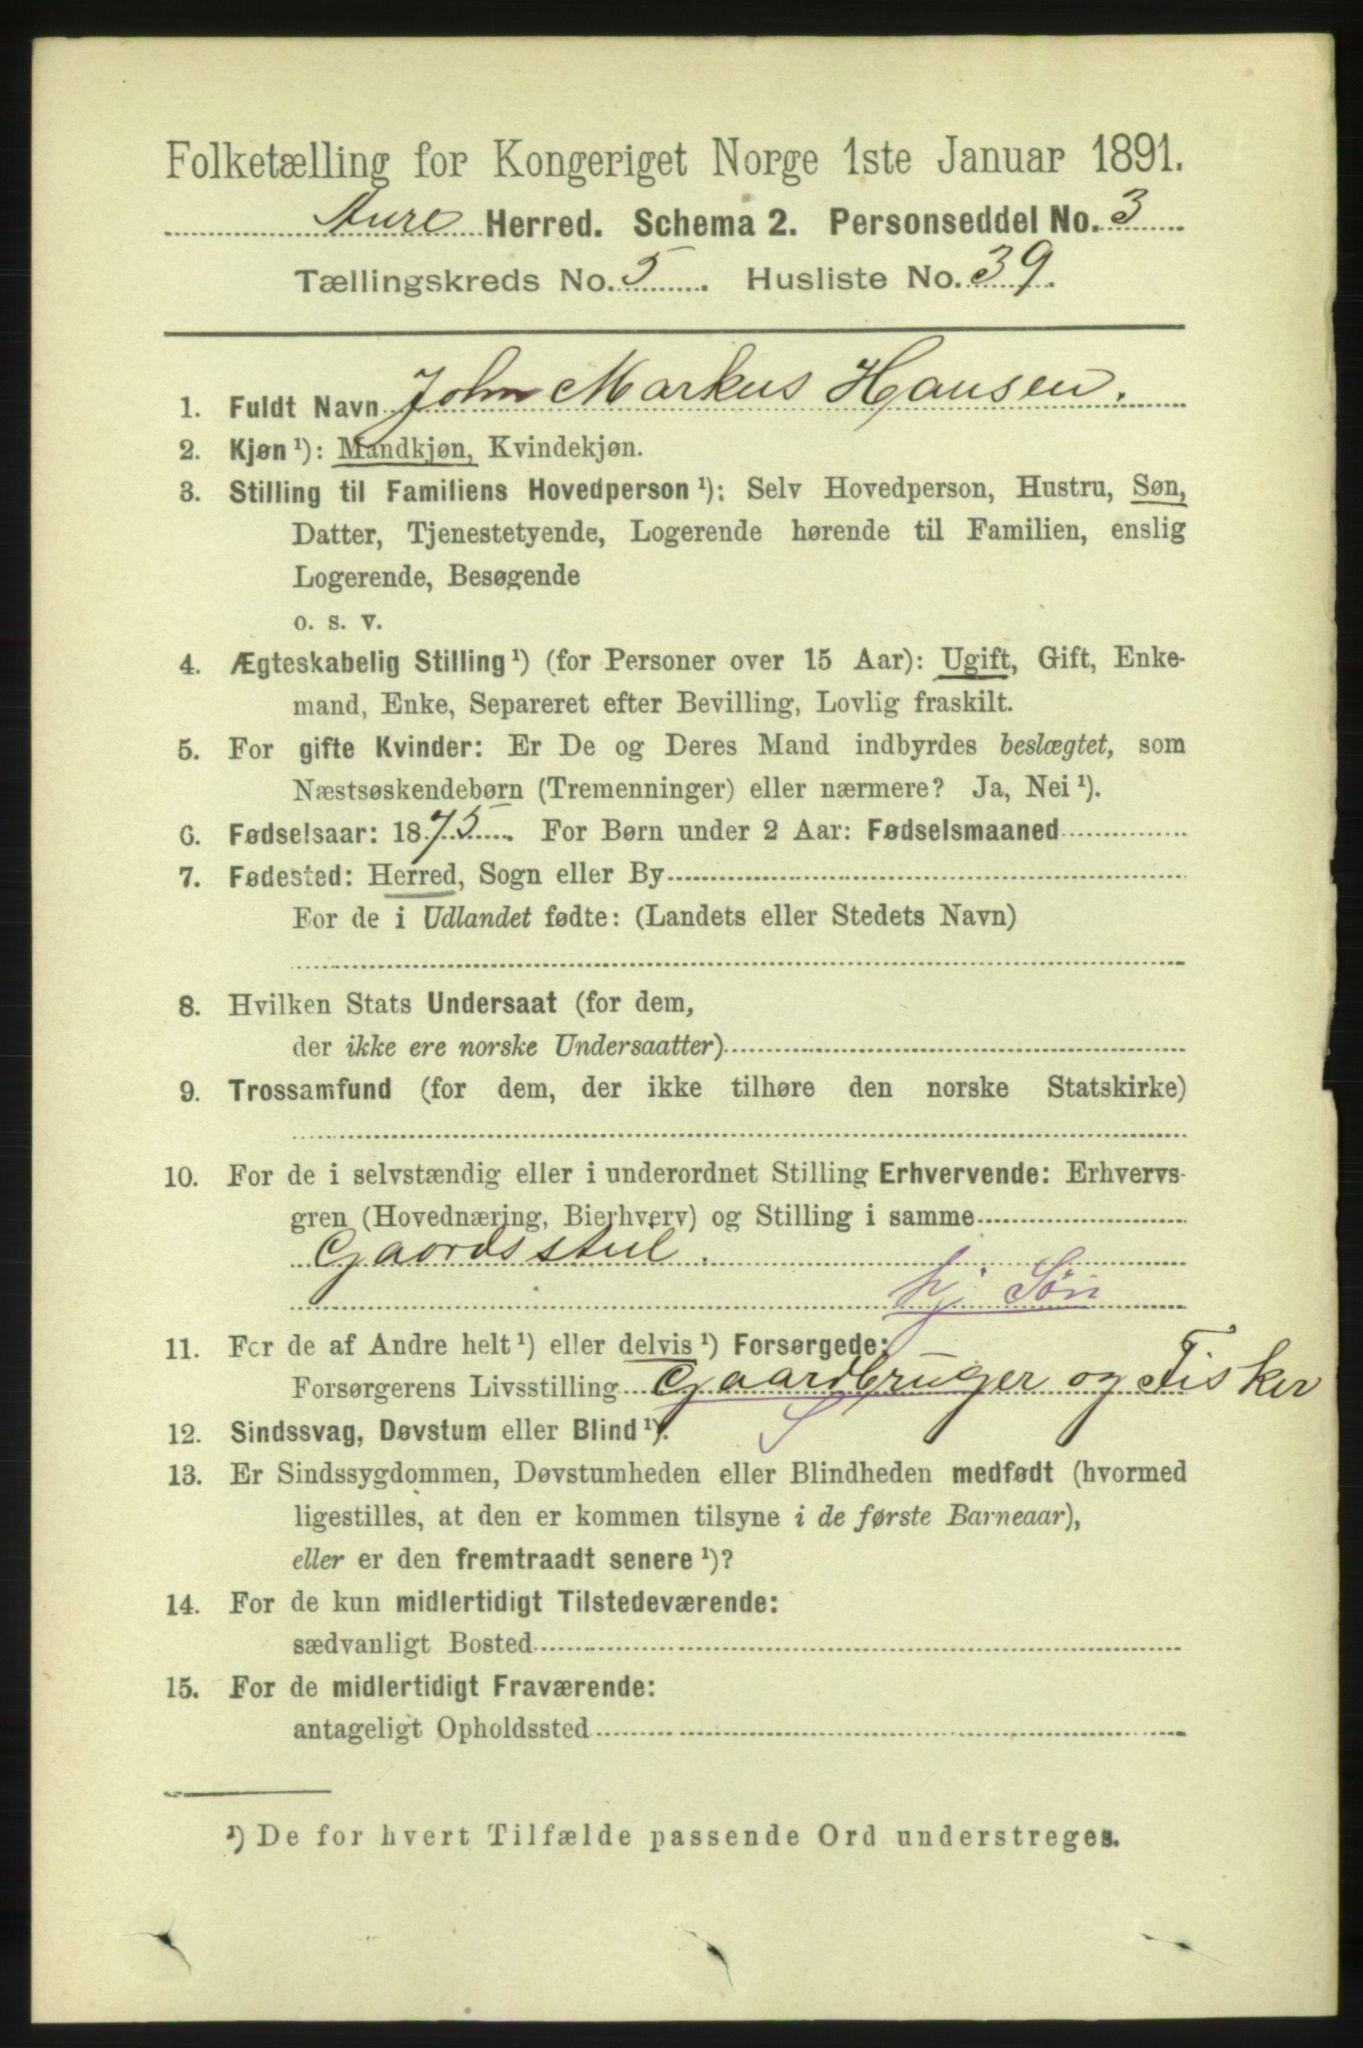 Folketælling for Kongeriget Norge 1ste Januar 1891.
Aure Herred. Schema 2. Personseddel No. 3
Tællingskreds No. 5. Husliste No. 39.
1. Fuldt Navn John Markus Hansen.
2. Kjøn ¹): Mandkjøn, Kvindekjøn.
3. Stilling til Familiens Hovedperson ¹): Selv Hovedperson, Hustru, Søn,
Datter, Tjenestetyende, Logerende hørende til Familien, enslig
Logerende, Besøgende
o. s. v.
4. Ægteskabelig Stilling ¹) (for Personer over 15 Aar): Ugift, Gift, Enke-
mand, Enke, Separeret efter Bevilling, Lovlig fraskilt.
5. For gifte Kvinder: Er De og Deres Mand indbyrdes beslægtet, som
Næstsøskendebørn (Tremenninger) eller nærmere? Ja, Nei ¹).
6. Fødselsaar: 1875. For Børn under 2 Aar: Fødselsmaaned
7. Fødested: Herred, Sogn eller By
For de i Udlandet fødte: (Landets eller Stedets Navn)
8. Hvilken Stats Undersaat (for dem,
der ikke ere norske Undersaatter)
9. Trossamfund (for dem, der ikke tilhøre den norske Statskirke)
10. For de i selvstændig eller i underordnet Stilling Erhvervende: Erhvervs-
gren (Hovednæring, Bierhverv) og Stilling i samme
hj Søn
11. For de af Andre helt ¹) eller delvis ¹) Forsørgede:
Forsørgerens Livsstilling Gaardbruger og Fisker
S
12. Sindssvag, Døvstum eller Blind ¹).
13. Er Sindssygdommen, Døvstumheden eller Blindheden medfødt (hvormed
ligestilles, at den er kommen tilsyne i de første Barneaar),
eller er den fremtraadt senere ¹)?
14. For de kun midlertidigt Tilstedeværende:
sædvanligt Bosted
15. For de midlertidigt Fraværende:
antageligt Opholdssted
¹) De for hvert Tilfælde passende Ord understreges.